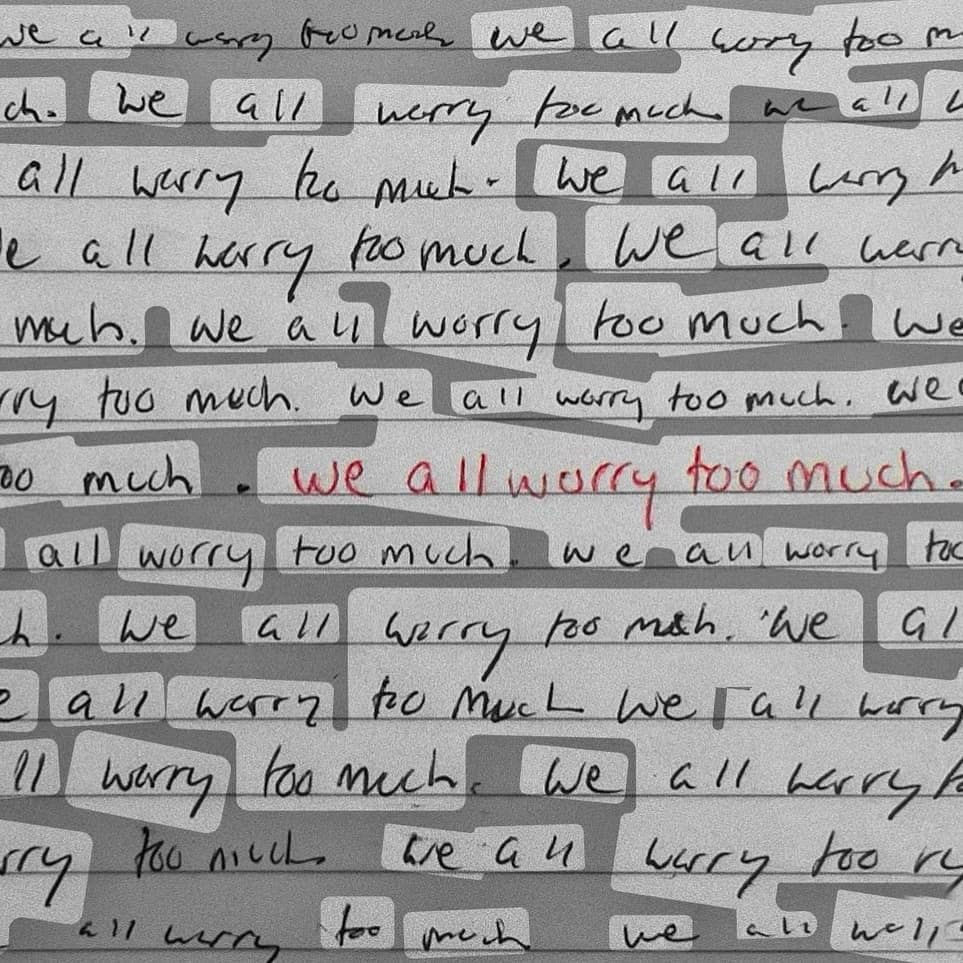 we all worry too much we all worry too m
ch. we all worry too much. we all
all worry too much. we all worry
e all worry too much. We all worry
much. we all worry too much. we
rry too much. we all worry too much. we
oo much. we all worry too much.
all worry too much. we all worry too
h. we all worry too much. we al
e all worry too much we all worry
ll worry too much. we all worry to
rry too much. we all worry too
all worry too much we all